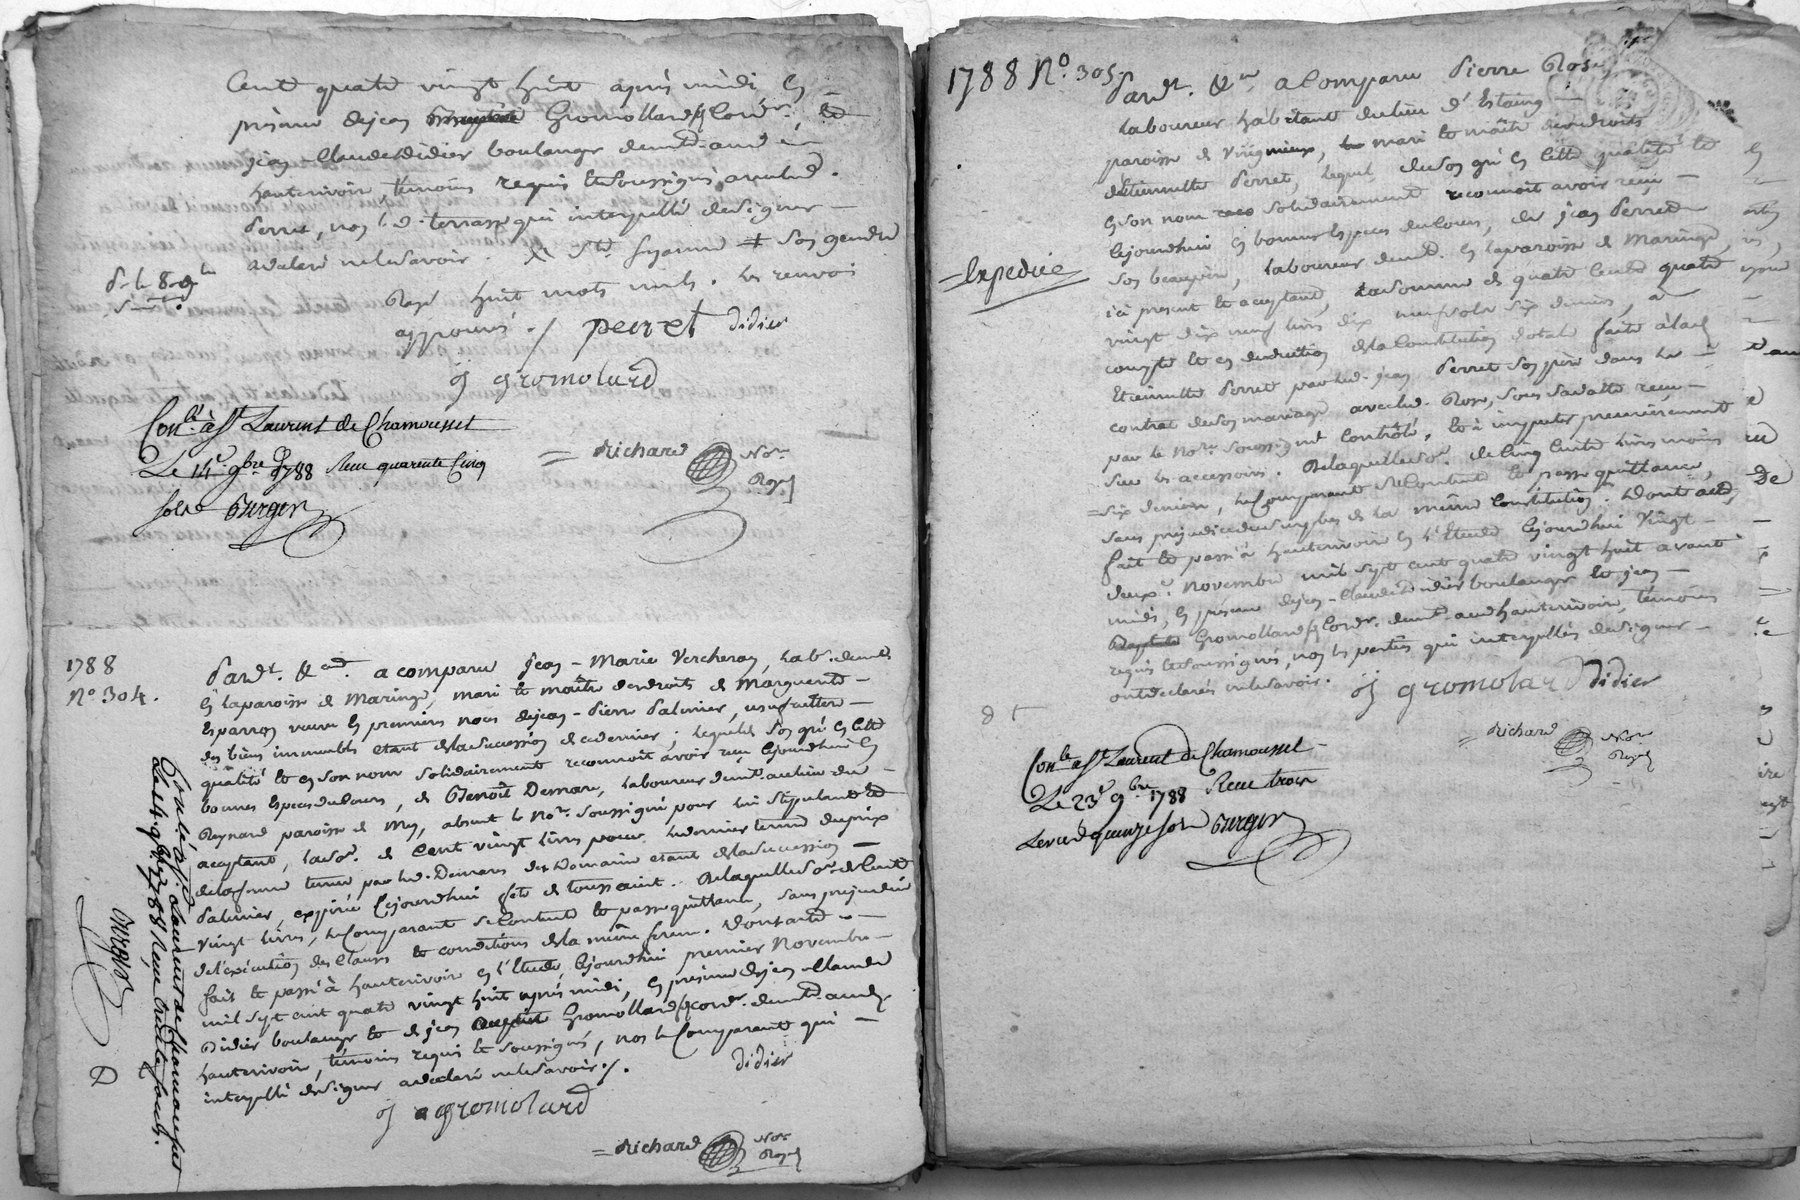 Cent quatre vingt huit après midi En
présence dejean Gromollard Cord.r, Et
jean-Claude Didier boulanger demt. aud
hauterivoir témoins requis Et soussignés, avec led.
Perret, non led. terrasse qui interpellé designer
adéclaré nelesavoir. Ste Suzanne ǂ son gendre
Rayé huit mots nuls. Les renvois
approuvés ./. perret Didier
j gromolard
Conlé à St. Laurent de Chamousset
Le 14e. 9bre 1788 Reçu quarente Cinq
sols Burgin
= Richard Nore
Royal
1788
No. 304.
Pardt. &a. a comparu jean-Marie Vercheron, hab. demt
En laparoisse de Maringe, mari Et maître desdroits de Marguerite
Esparron veuve En premiers noces dejean-Pierre Palmier, usufruitière
des biens immeubles étant delasuccession decedernier ; lequel Son qu'En Cette
qualité Et En Son nom Solidairement reconnoit avoir reçu Cejourdhui En
bonnes Espèces ducours, de Benoît Demare, laboureur demt. aulieu du
Reynard paroisse de Mey, absent le Nore. Soussigné pour lui Stipulant Et
acceptant, laSoe. de Cent vingt livres pour ledernier terme duprix
delaferme tenue par led. Demare des Domaine étant delasuccession
Palmier, expirée Cejourdhui fête de toussaint. Delaquelle Soe. de Cent
Vingt livres, leComparant SeContente Et passe quittance, Sans préjudice
del'exécution des Clauses Et conditions delamême ferme. Dont acte
fait Et passé à hauterivoir En l'Etude, Cejourdhui premier Novembre
mil Sept cent quatre vingt huit après midi, En présence dejean-Claude
Didier boulanger Et de jean Gromollard Cord.r demt. aud.
hauterivoir, témoins requis Et soussignés, non le Comparant qui
interpellé designer adéclaré nelesavoir ./.
Didier
j gromolard
= Richard Nore
Royal
Conlé à St. Laurent de Chamousset
Le 14e. 9bre 1788 Reçu trente sols.
Burgin
D
1788 No. 305.
Pardt. &a. a Comparu Pierre Rose,
Laboureur habitant dulieu d'Estaing
paroisse de Virigneux, mari Et maître desdroits
d'Etiennette Perret, lequel, deSon qu'En Cette qualité Et
En Son nom Solidairement reconnoît avoir reçu
Cejourdhui En bonnes Espèces ducours, de jean Perret
Son beaupère, Laboureur demt. En laparoisse de Maringe,
ici présent Et acceptant, laSomme de quatre Cents quatre
vingt dix neuf livres dix neuf sols Six deniers, à
compte Et En déduction delaConstitution dotale faite àlad.
Etiennette Perret par led. jean Perret Son père dans le
contrat deson mariage avec led. Rose, Sous Sadatte reçu
par le Nore. Soussigné Contrôlé, Et à imputer premièrement
Sur les accessoirs. Delaquelle Soe. de Cinq Cents livres moins
Six deniers, leComparant SeContente Et passe quittance,
Sans préjudice du surplus de la même Constitution. Dont acte,
fait Et passé à hauterivoir En l'Etude Cejourdhui Vingt
deux. Novembre mil Sept cent quatre vingt huit avant
midi, En présence dejean-Claude Didier boulanger Et jean
Gromollard Cord.r demt. aud hauterivoir, témoins
requis Et soussignés, non les parties qui interpellés designer
ont déclarés nelesavoir.
j gromolard Didier
= Richard Nore
Royal
= Expediée
Conlé à St. Laurent de Chamousset
Le 23e 9bre 1788 Reçu trois
Livres quinze sols Burgin